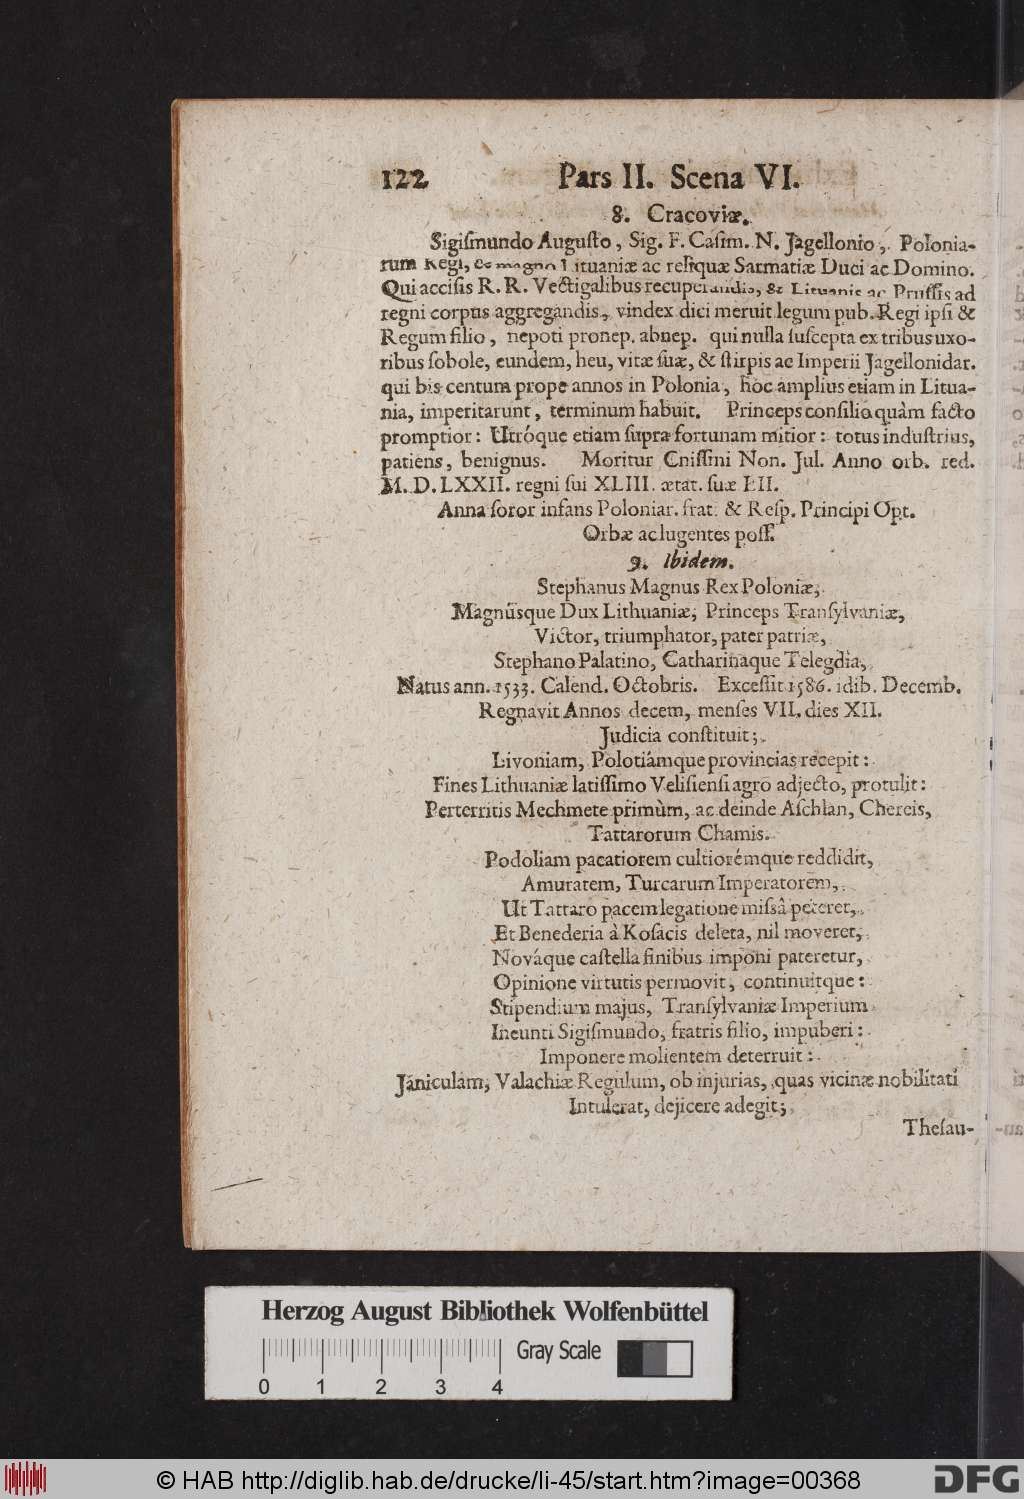 122 Pars II. Scena VI.
8. Cracoviæ.
Sigiſmundo Auguſto, Sig. F. Caſim. N. Jagellonio, Polonia-
rum Regi, & magno Lituaniæ ac reliquæ Sarmatiæ Duci ac Domino.
Qui acciſis R. R. Vectigalibus recuperandis, & Lituanis ac Pruſſis ad
regni corpus aggregandis, vindex dici meruit legum pub. Regi ipſi &
Regum filio, nepoti pronep. abnep. qui nulla ſuſcepta ex tribus uxo-
ribus ſobole, eundem, heu, vitæ ſuæ, & ſtirpis ac Imperii Jagellonidar.
qui bis centum prope annos in Polonia, hoc amplius etiam in Litua-
nia, imperitarunt, terminum habuit. Princeps conſilio quàm facto
promptior: Utróque etiam ſupra fortunam mitior: totus induſtrius,
patiens, benignus. Moritur Cniſſini Non. Jul. Anno orb. red.
M. D. LXXII. regni ſui XLIII. ætat. ſuæ LII.
Anna ſoror infans Poloniar. frat. & Reſp. Principi Opt.
Orbæ ac lugentes poſſ.
9. Ibidem.
Stephanus Magnus Rex Poloniæ,
Magnúsque Dux Lithuaniæ, Princeps Tranſylvaniæ,
Victor, triumphator, pater patriæ,
Stephano Palatino, Catharinaque Telegdia,
Natus ann. 1533. Calend. Octobris. Exceſſit 1586. idib. Decemb.
Regnavit Annos decem, menſes VII. dies XII.
Judicia conſtituit;
Livoniam, Polotiámque provincias recepit:
Fines Lithuaniæ latiſſimo Veliſienſi agro adjecto, protulit:
Perterritis Mechmete primùm, ac deinde Aſchlan, Chereis,
Tattarorum Chamis.
Podoliam pacatiorem cultiorémque reddidit,
Amuratem, Turcarum Imperatorem,
Ut Tattaro pacem legatione miſsâ peteret,
Et Benederia à Koſacis deleta, nil moveret,
Nováque caſtella finibus imponi pateretur,
Opinione virtutis permovit, continuitque:
Stipendium majus, Tranſylvaniæ Imperium
Ineunti Sigiſmundo, fratris filio, impuberi:
Imponere molientem deterruit:
Janiculam, Valachiæ Regulum, ob injurias, quas vicinæ nobilitati
Intulerat, dejicere adegit;
Theſau-
Herzog August Bibliothek Wolfenbüttel
Gray Scale
0 1 2 3 4
© HAB http://diglib.hab.de/drucke/li-45/start.htm?image=00368
DFG